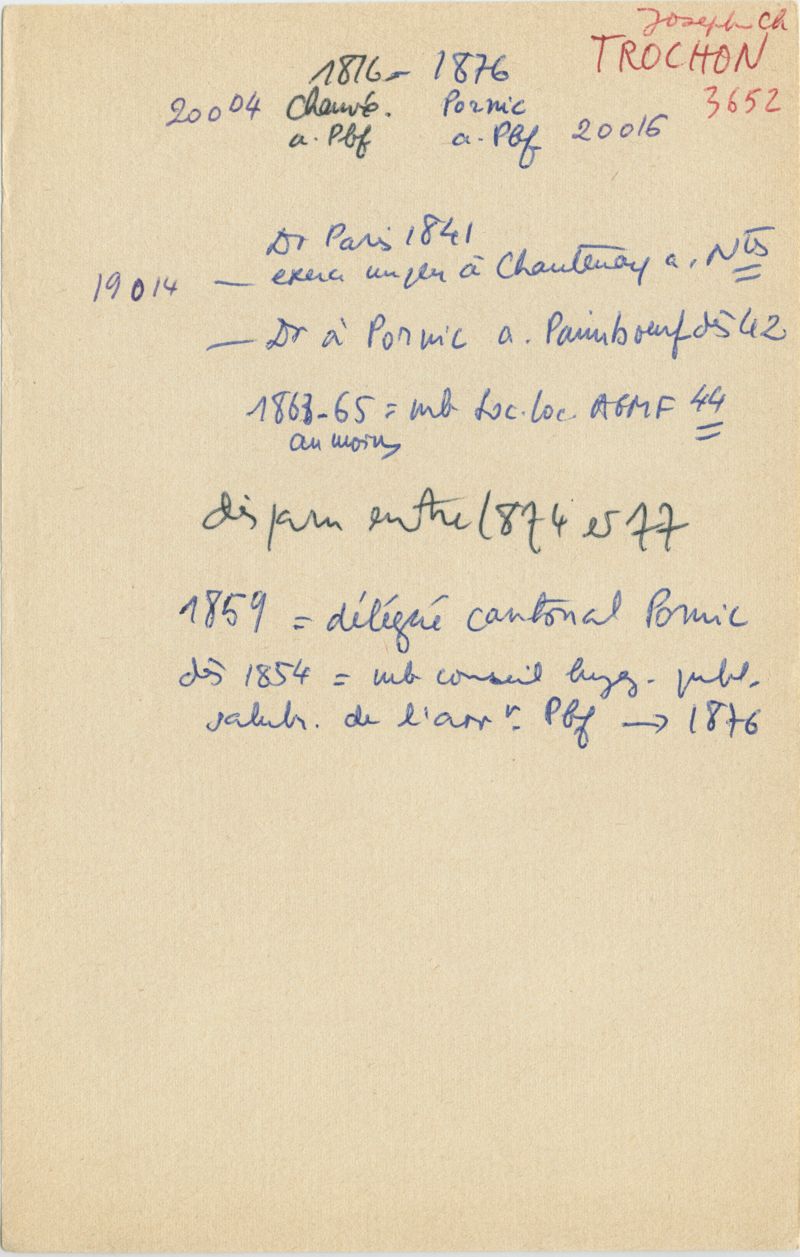 Joseph Ch
TROCHON
3652
1816 - 1876
20004 Chauvé. Pornic
a. Pbf a. Pbf 20016
Dr Paris 1841
19014 — exerca un peu à Chantenay a. Nts
— Dr à Pornic a. Paimboeuf dès 42
1863-65 = mb Soc. loc. AGMF 44
au moins
disparu entre 1874 et 77
1859 = délégué cantonal Pornic
dès 1854 = mb conseil hyg. publ.
salubr. de l'arrr. Pbf → 1876